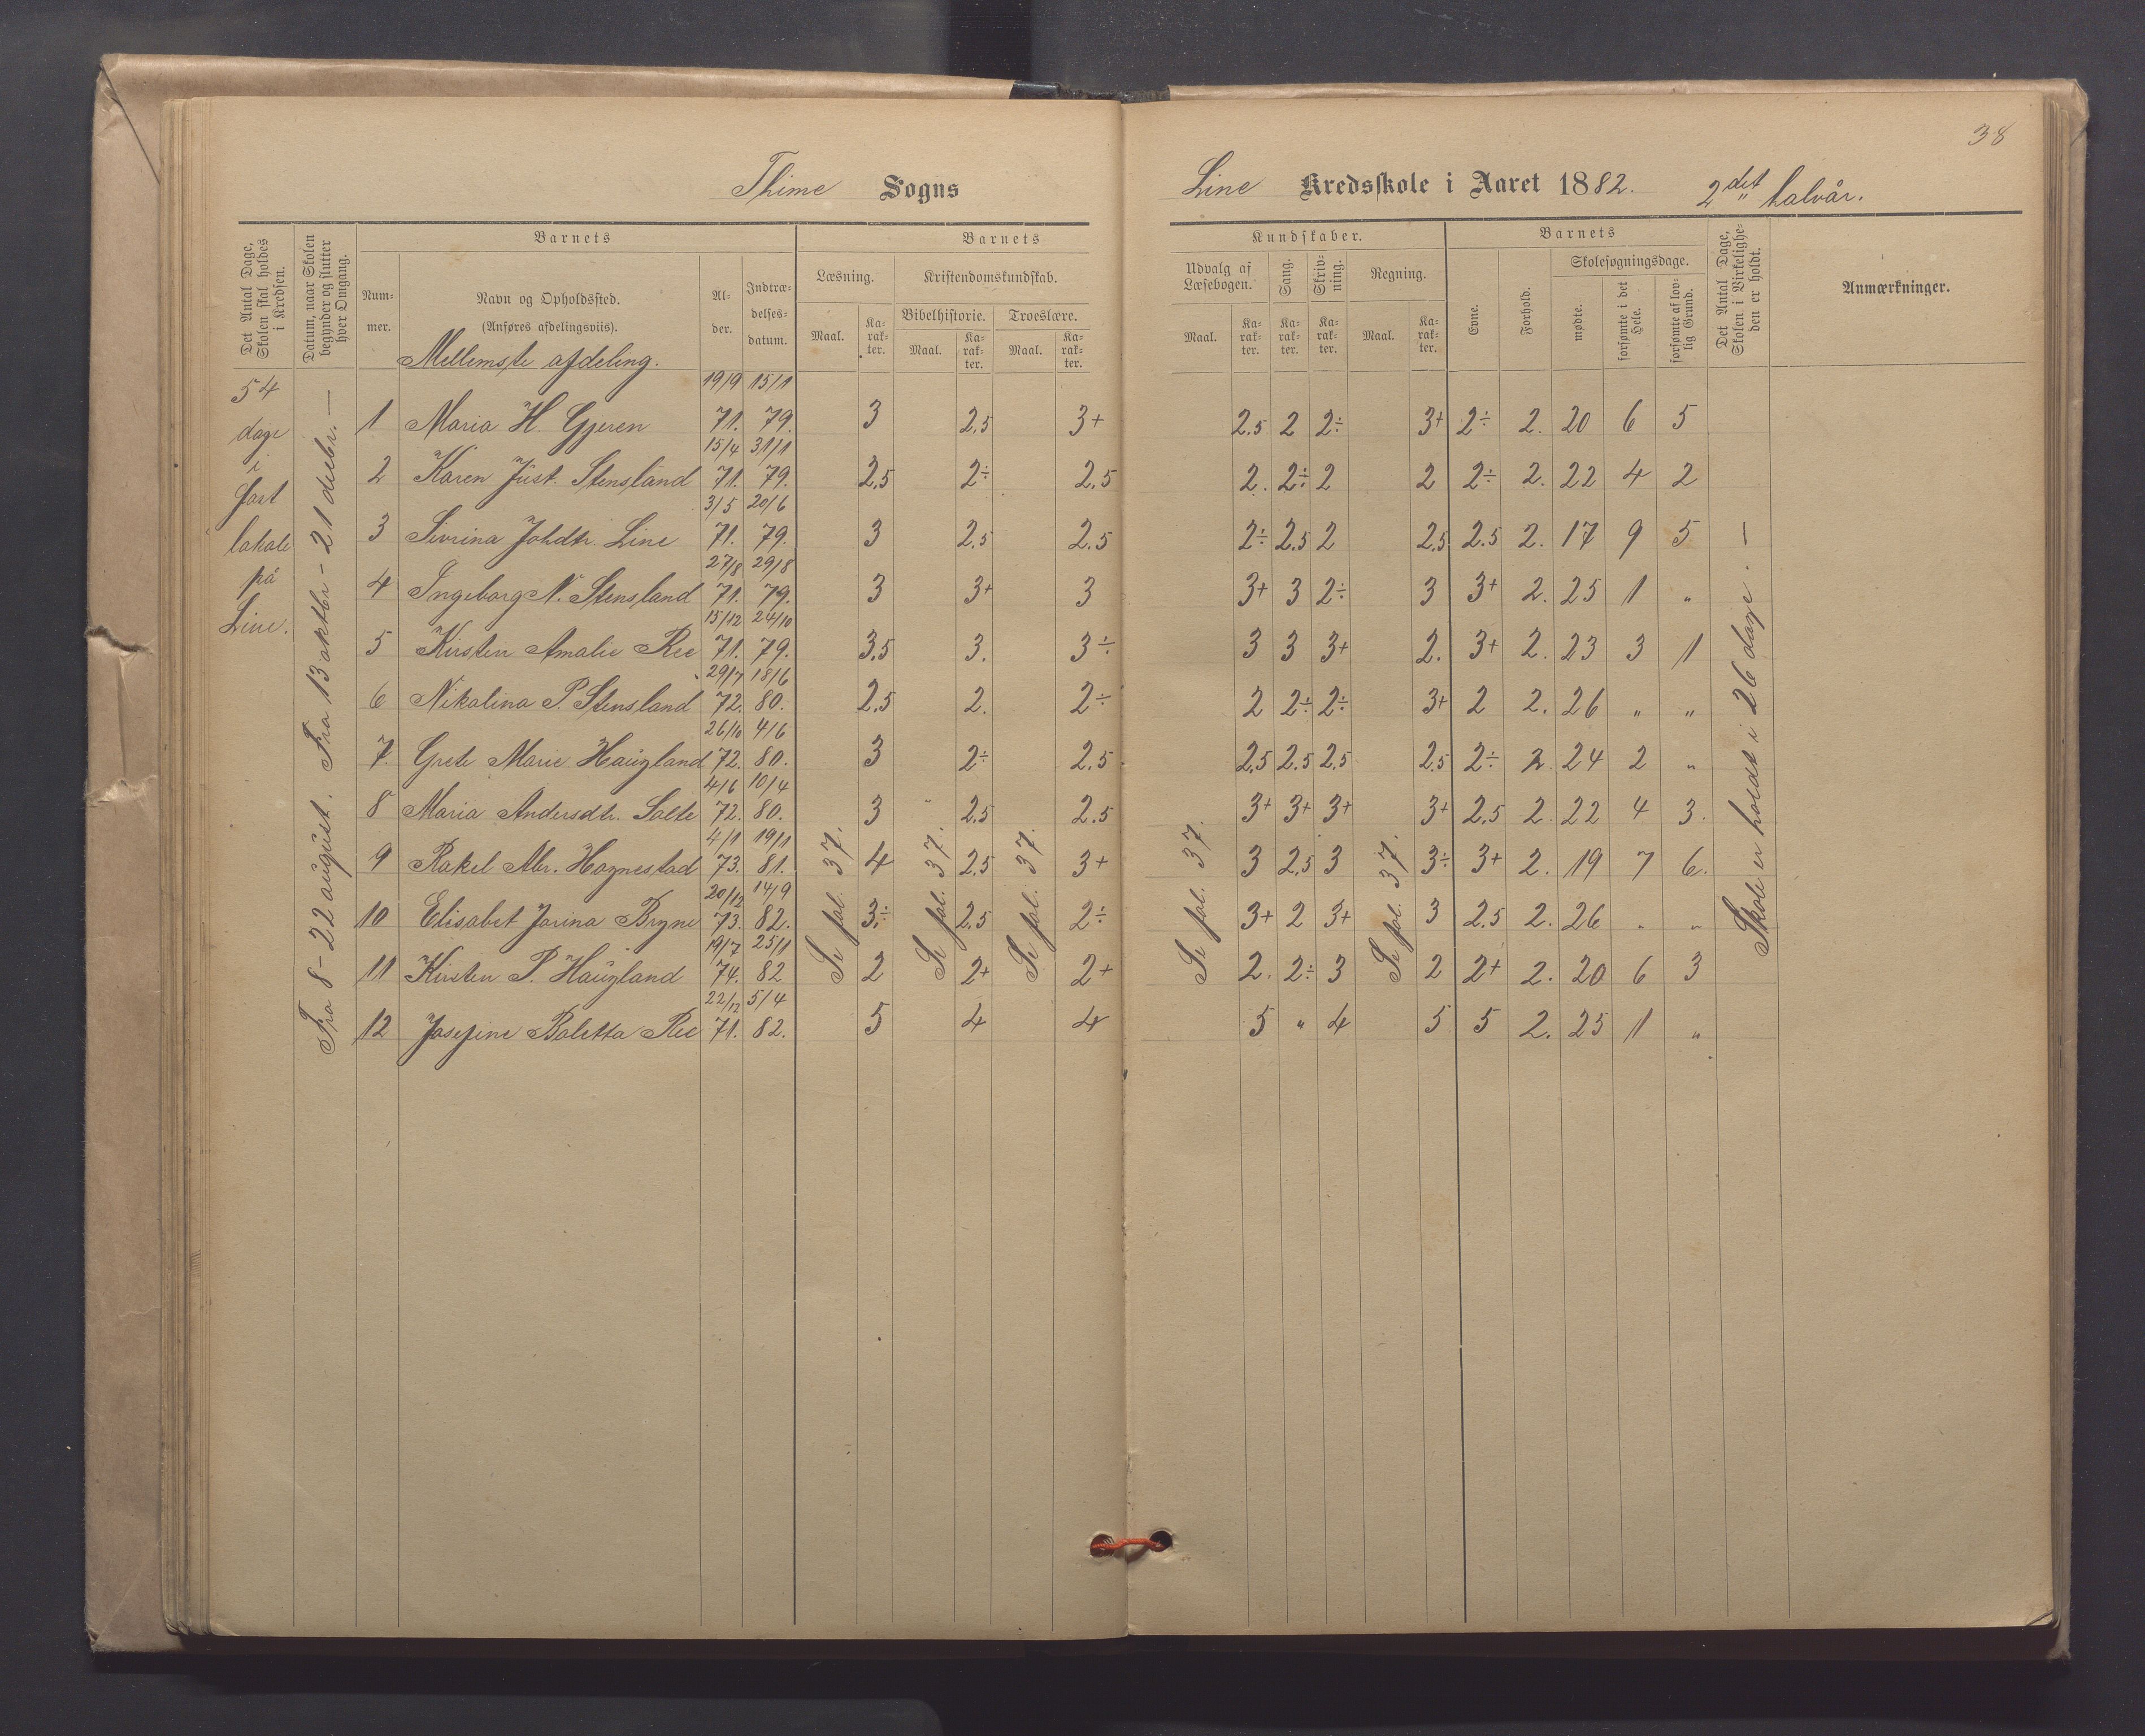 38
Thime Sogns
Line Kredsskole i Aaret 1882. 2det halvår.
Det Antal Dage, Skolen skal holdes i Kredsen.
Datum, naar Skolen begynder og slutter hver Omgang.
Barnets
Nummer.
Navn og Opholdssted.
(Anføres afdelingsviis).
Alder.
Indtrædelses-datum.
Barnets
Læsning.
Maal.
Karakter.
Kristendomskundskab.
Bibelhistorie.
Maal.
Karakter.
Troeslære.
Maal.
Karakter.
Kundskaber.
Udvalg af Læsebogen.
Maal.
Karakter.
Sang.
Karakter.
Skrivning.
Karakter.
Regning.
Maal.
Karakter.
Barnets
Evne.
Forhold.
Skolesøgningsdage.
mødte.
forsømte i det Hele.
forsømte af lovlig Grund.
Det Antal Dage, Skolen i Virkeligheden er holdt.
Anmærkninger.
Mellemste afdeling.
54
dage
i
fast
lokale
på
Line.
Fra 8 - 22 august. Fra 13 oktbr - 21 decbr. —
1 Maria H. Gjeren 19/9 71. 15/1 79. 3 2,5 3+ 2,5 2 2÷ 3+ 2÷ 2. 20 6 5
2 Karen Just. Stensland 15/4 71. 31/1 79. 2,5 2÷ 2,5 2. 2÷ 2 2 2÷ 2. 22 4 2
3 Sivrina Johdtr. Line 3/5 71. 20/6 79. 3 2,5 2,5 2÷ 2,5 2 2,5 2,5 2. 17 9 5
4 Ingeborg N. Stensland 27/8 71. 29/8 79. 3 3+ 3 3+ 3 2÷ 3 3+ 2. 25 1 "
5 Kirsten Amalie Ree 15/12 71. 24/10 79. 3,5 3. 3÷ 3 3 3+ 2. 3+ 2. 23 3 1
6 Nikolina P. Stensland 29/7 72. 18/6 80. 2,5 2. 2÷ 2 2÷ 2÷ 3+ 2 2. 26 " "
7. Grete Marie Haugland 26/10 72. 4/6 80. 3 2÷ 2,5 2,5 2,5 2,5 2,5 2÷ 2. 24 2 "
8 Maria Andersdtr. Salte 4/6 72. 10/4 80. 3 2,5 2,5 3+ 3+ 3+ 3+ 2,5 2. 22 4 3.
9 Rakel Abr. Hognestad 4/1 73. 19/1 81. 4 2,5 3+ 3 2,5 3 3÷ 3+ 2. 19 7 6.
10 Elisabet Jorina Bryne 20/12 73. 14/9 82. 3÷ 2,5 2÷ 3+ 2 3+ 3 2,5 2. 26 " "
11 Kirsten P. Haugland 19/7 74. 25/11 82 2 2+ 2+ 2. 2÷ 3 2 2+ 2. 20 6 3
12 Josefine Boletta Ree 22/12 71. 5/4 82. 5 4 4 5 " 4 5 5 2. 25 1 "
Se fol. 37.
Se fol. 37.
Se fol. 37.
Se fol. 37.
Se fol. 37.
Skole er holdt i 26 dage. —